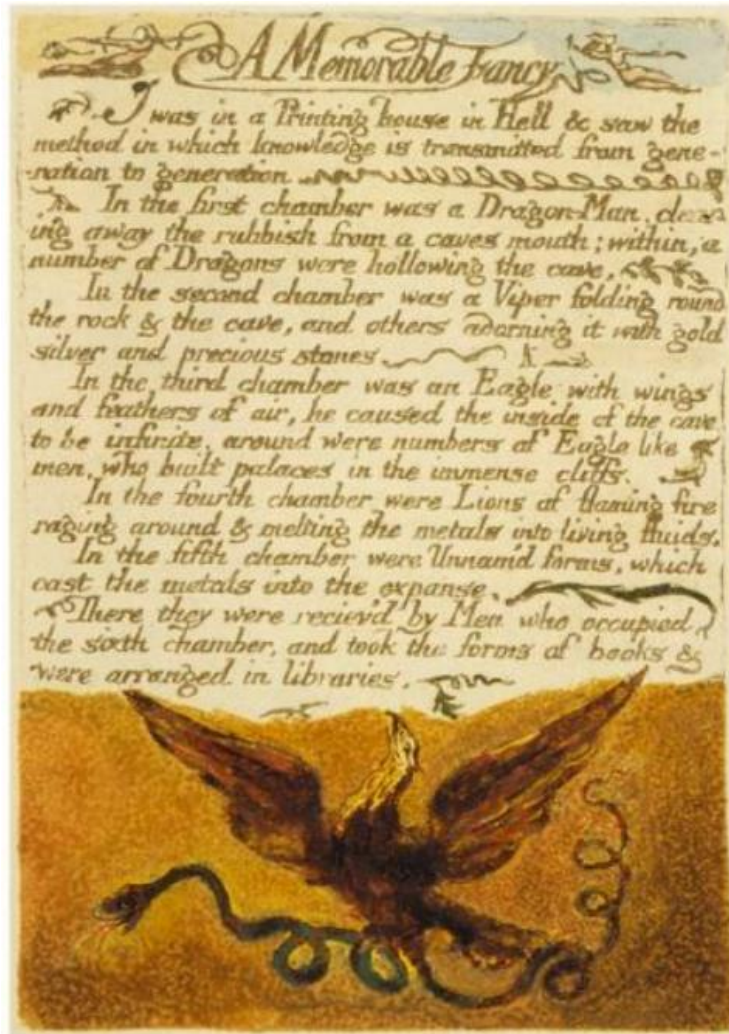 A Memorable Fancy
I was in a Printing house in Hell & saw the
method in which knowledge is transmitted from gene-
-ration to generation.
In the first chamber was a Dragon-Man, clear-
ing away the rubbish from a caves mouth; within, a
number of Dragons were hollowing the cave,
In the second chamber was a Viper folding round
the rock & the cave, and others adorning it with gold
silver and precious stones.
In the third chamber was an Eagle with wings
and feathers of air, he caused the inside of the cave
to be infinite, around were numbers of Eagle like
men, who built palaces in the immense cliffs.
In the fourth chamber were Lions of flaming fire
raging around & melting the metals into living fluids.
In the fifth chamber were Unnam'd forms, which
cast the metals into the expanse.
There they were reciev'd by Men who occupied
the sixth chamber, and took the forms of books &
were arranged in libraries.